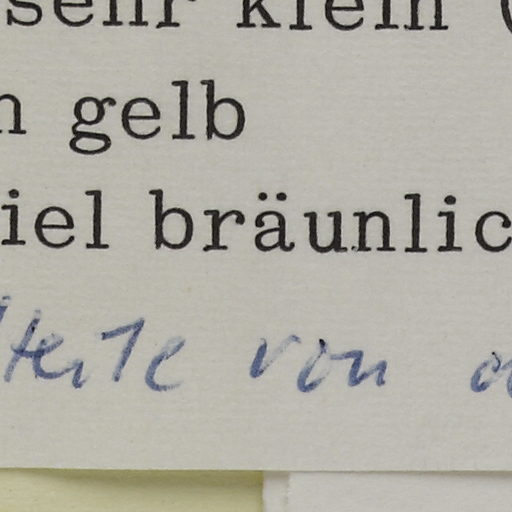 sehr klein (
n gelb
iel bräunlic
von